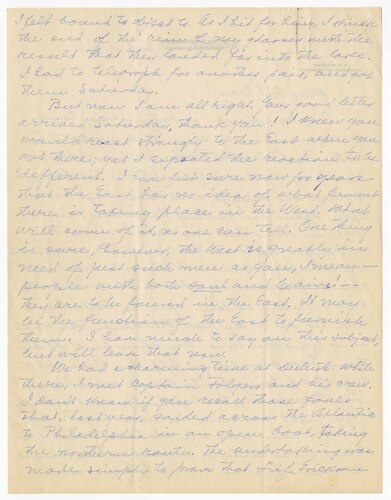 I felt bound to object to. As I hit for him, I struck
the end of the reins to my glasses with the
result that they landed far into the lake.
I had to telegraph for another pair, and got
them Saturday.
But now I am all right. Your good letter
arrived Saturday, thank you! I knew you
would react strongly to the East when you
got there; yet I expected the reaction to be
different. I have felt sure now for years
that the East has no idea of what ferment
there is taking place in the West. What
will come of it, no one can tell. One thing
is sure, however, the West is greatly in
need of just such men as you, I mean —
people with both soul and brains —
They are to be found in the East. It may
be the function of the East to furnish
them. I have much to say on this subject,
but will leave that now.
We had a charming time at Duluth. While
there, I met Captain Folgero and his crew.
I don't know if you recall those fools
that, last year, sailed across the Atlantic
to Philadelphia in an open boat, taking
the northern route. The undertaking was
made simply to prove that Leif Erickson